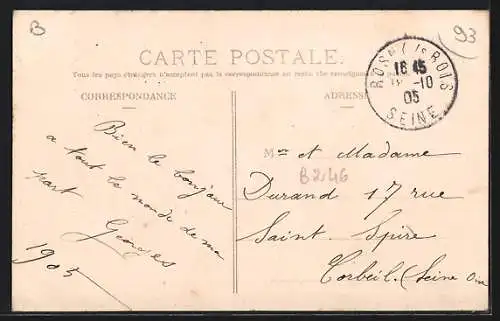 B
93
CARTE POSTALE.
Tous les pays étrangers n'acceptent pas la correspondance au recto
CORRESPONDANCE
ADRESSE
ROSNY /s BOIS
16 45
-10
05
SEINE
Bien le bonjour
a tout le monde de ma
part
Georges
1905
Mr et Madame
B246
Durand 17 rue
Saint Spire
Corbeil. (Seine Oise